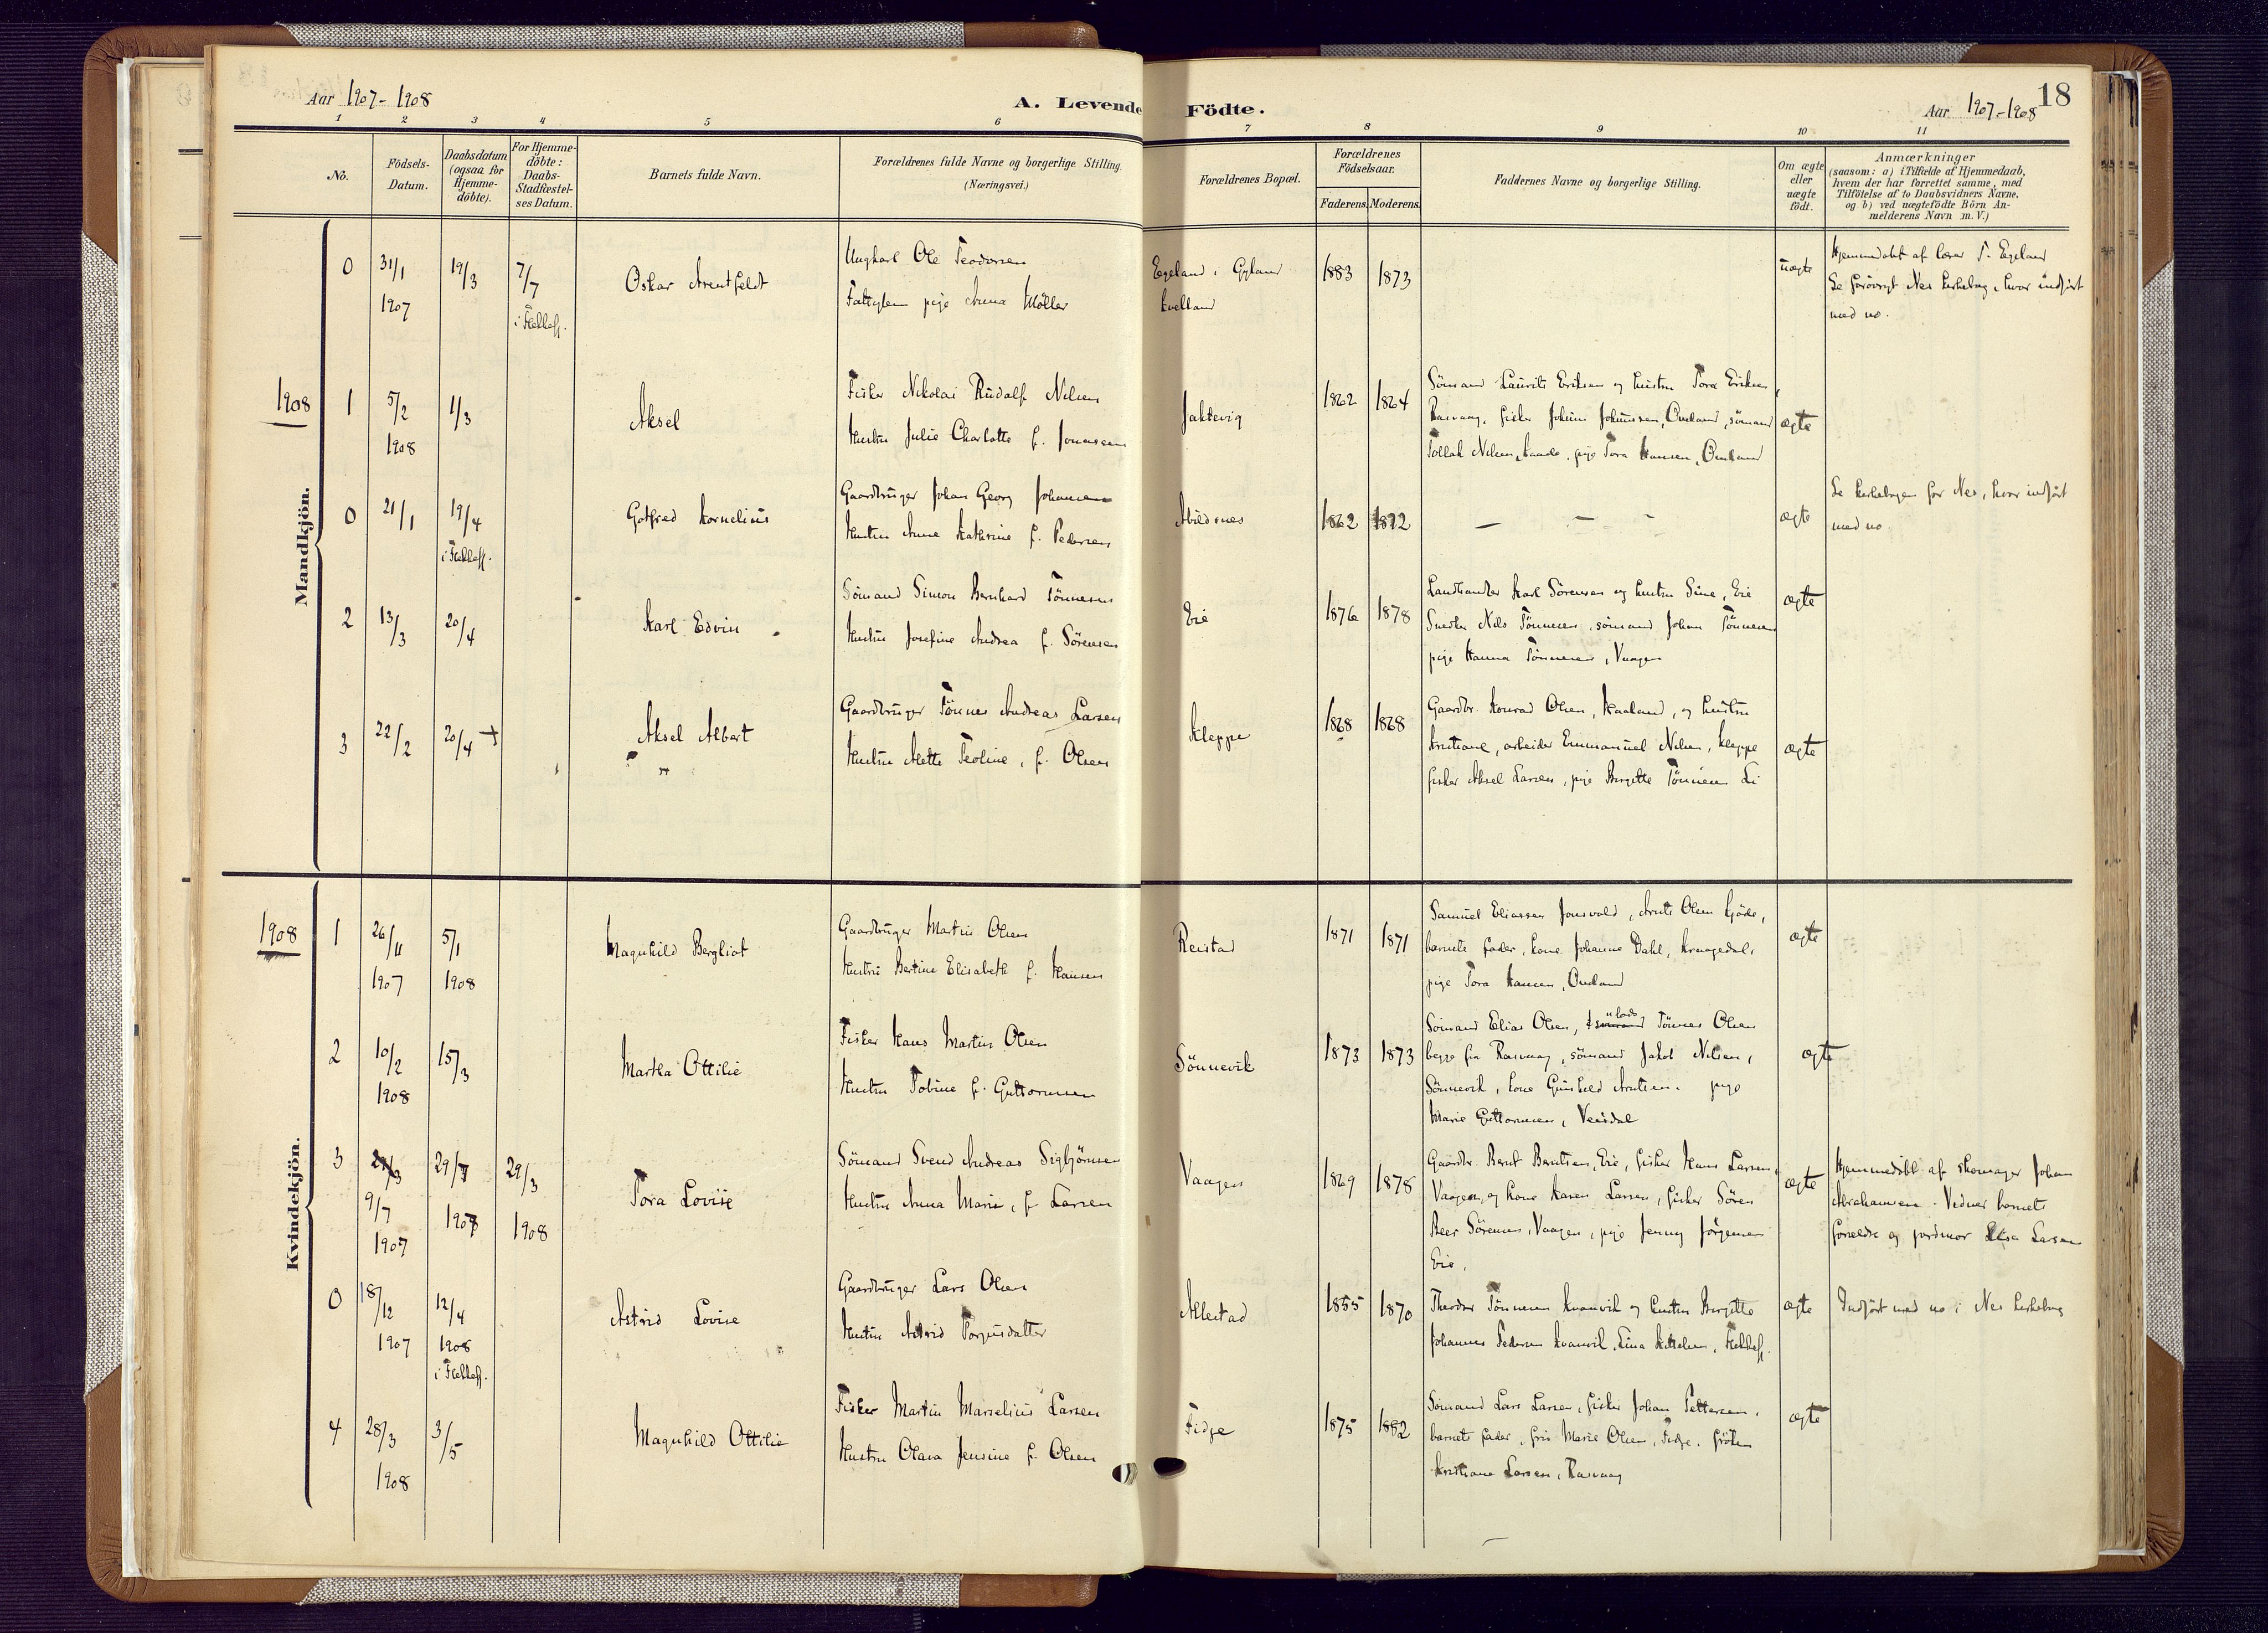 Aar 1907-1908
A. Levende Födte.
Aar 1907-1908
18
1 2 3 4 5 6 7 8 9 10 11
No.
Födsels-
Datum.
Daabsdatum
(ogsaa for
Hjemme-
döbte).
For Hjemme-
döbte:
Daabs-
Stadfæstel-
ses Datum.
Barnets fulde Navn.
Forældrenes fulde Navne og borgerlige Stilling.
(Næringsvei.)
Forældrenes Bopæl.
Forældrenes
Födselsaar.
Faderens. Moderens.
Faddernes Navne og borgerlige Stilling.
Om ægte
eller
uægte
födt.
Anmærkninger
(saasom: a) i Tilfælde af Hjemmedaab,
hvem der har forrettet samme, med
Tilföielse af to Daabsvidners Navne,
og b) ved uægtefödte Börn An-
melderens Navn m. V.)
Mandkjön.
0 31/1 1907 19/3 7/7 i Flekkefj.
Oskar Arentfeldt
Ungkarl Ole Teodorsen
pige Anna Möller
Egeland i Gyland
Kvelland
1883 1873
uægte
Hjemmedöbt af lærer T. Egeland
Se forövrigt Nes kirkebog, hvor indfört
med no.
1908
1 5/2 1908 1/3
Aksel
Fisker Nikolai Rudolf Nilsen
Hustru Julie Charlotte f. Jonassen
Jaktevig
1862 1864
Sömand Laurits Eriksen og hustru Tora Eriksen,
Rasvaag, fisker Johan Johannsen, Omland, sömand
Tollak Nilsen, pige Tora Hansen, Omland
ægte
0 21/1 19/4 i Flekkefj.
Gotfred Kornelius
Gaardbruger Johan Georg Johansen
Hustru Anne Kathrine f. Pedersen
Abildsnes
1862 1872
— — -
ægte
Se kirkebogen for Nes, hvor indfört
med no
2 13/3 20/4
Karl Edvin
Sömand Simon Bernhard Tönnesen
Hustru Josefine Andrea f. Sörensen
Eie
1876 1878
Landhandler Karl Sörensen og hustru Sine, Eie
Snedker Nils Tönnesen, sömand Johan Tönnesen
pige Hanna Tönnesen, Vaagen
ægte
3 22/2 20/4 +
Aksel Albert
"
Gaardbruger Tönnes Andreas Larsen
Hustru Alette Teoline, f. Olsen
Kleppe
1868 1868
Gaardbr. Konrad Olsen, Haaland, og hustru
Kristiane, arbeider Emmanuel Nilsen, Kleppe
fisker Aksel Larsen, pige Bergitte Tönnesen Li
ægte
Kvindekjön.
1908
1 26/11 1907 5/1 1908
Magnhild Bergliot
Gaardbruger Martin Olsen
Hustru Bertine Elisabeth f. Hansen
Reistad
1871 1871
Samuel Eliassen Jonsvold, Arnts Olsen Gjöde,
barnets fader, kone Johanne Dahl, Kraagedal,
pige Tora Hansen, Omland
ægte
2 10/2 1908 15/3
Martha Ottilie
Fisker Hans Martin Olsen
Hustru Tobine f. Guttormsen
Sönnevik
1873 1873
Sömand Elias Olsen, lods Tönnes Olsen
begge fra Rasvaag, sömand Jakob Nilsen,
Sönnevik, kone Gunhild Arntsen. pige
Marie Guttormsen, Veisdal
ægte
3 29/3 9/7 1907 29/7 1907 29/3 1908
Tora Lovise
Sömand Svend Andreas Sigbjörnsen
Hustru Anna Marie, f Larsen
Vaagen
1869 1878
Gaardbr. Bernt Berntsen, Eie, fisker Hans Larsen,
Vaagen, og kone Karen Larsen, fisker Sören
Beer Sörensen, Vaagen, pige Jenny Jörgensen
Eie.
ægte
Hjemmedöbt af skomager Johan
Abrahamsen. Vidner barnets
forældre og jordmor Elisa Larsen
0 18/12 1907 12/4 1908 i Flekkefj.
Astrid Lovise
Gaardbruger Lars Olsen
Hustru Astrid Torgusdatter
Allestad
1855 1870
Theodor Tönnesen Kvanvik og hustru Bergitte
Johannes Pedersen Kvanvik, Lina Kittelsen, Flekkefj.
ægte
Indfört med no i Nes kirkebog
4 28/3 1908 3/5
Magnhild Ottilie
Fisker Martin Marselius Larsen
Hustru Olava Jensine f. Olsen
Fidje
1875 1882
Sömand Lars Larsen, fisker Johan Pettersen,
barnets fader, fru Marie Olsen, Fidje, fröken
Kristiane Larsen, Rasvaag
ægte